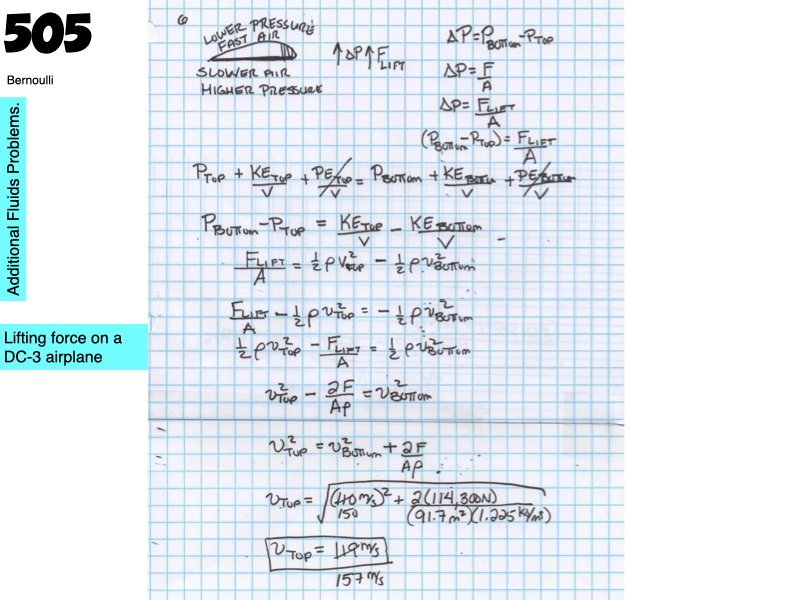 505
Bernoulli
Additional Fluids Problems.
Lifting force on a
DC-3 airplane
6
LOWER PRESSURE
FAST AIR
SLOWER AIR
HIGHER PRESSURE
↑ΔP↑F_LIFT
ΔP = P_BOTTOM - P_TOP
ΔP = F/A
ΔP = F_LIFT/A
(P_BOTTOM - P_TOP) = F_LIFT/A
P_TOP + KE_TOP/V + PE_TOP/V = P_BOTTOM + KE_BOTTOM/V + PE_BOTTOM/V
P_BOTTOM - P_TOP = KE_TOP/V - KE_BOTTOM/V
F_LIFT/A = ½ρv²_TOP - ½ρv²_BOTTOM
F_LIFT/A - ½ρv²_TOP = -½ρv²_BOTTOM
½ρv²_TOP - F_LIFT/A = ½ρv²_BOTTOM
v²_TOP - 2F/Aρ = v²_BOTTOM
v²_TOP = v²_BOTTOM + 2F/Aρ
v_TOP = √((110 m/s)² + 2(114,300N)/(91.7m²)(1.225 kg/m³))
150
v_TOP = 119 m/s
157 m/s